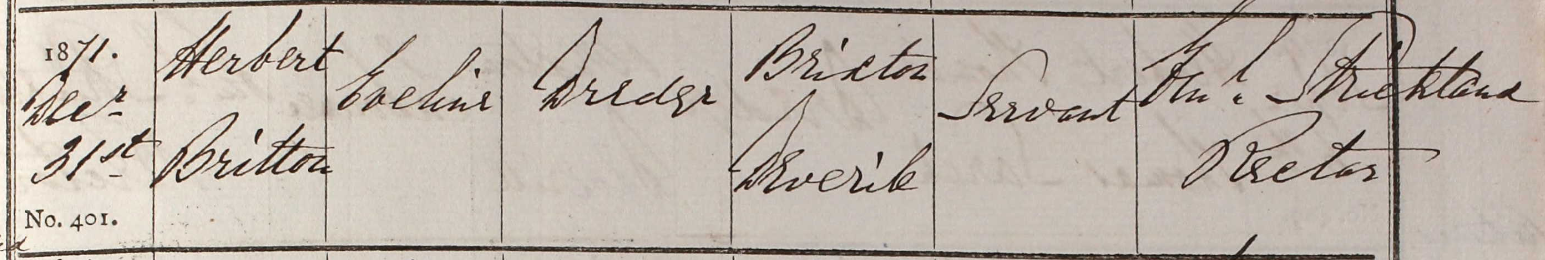 1871.
Decr
31st
No. 401.
Herbert
Britton
Eveline
Dredge
Brixton
Deverill
Servant
Strickland
Rector